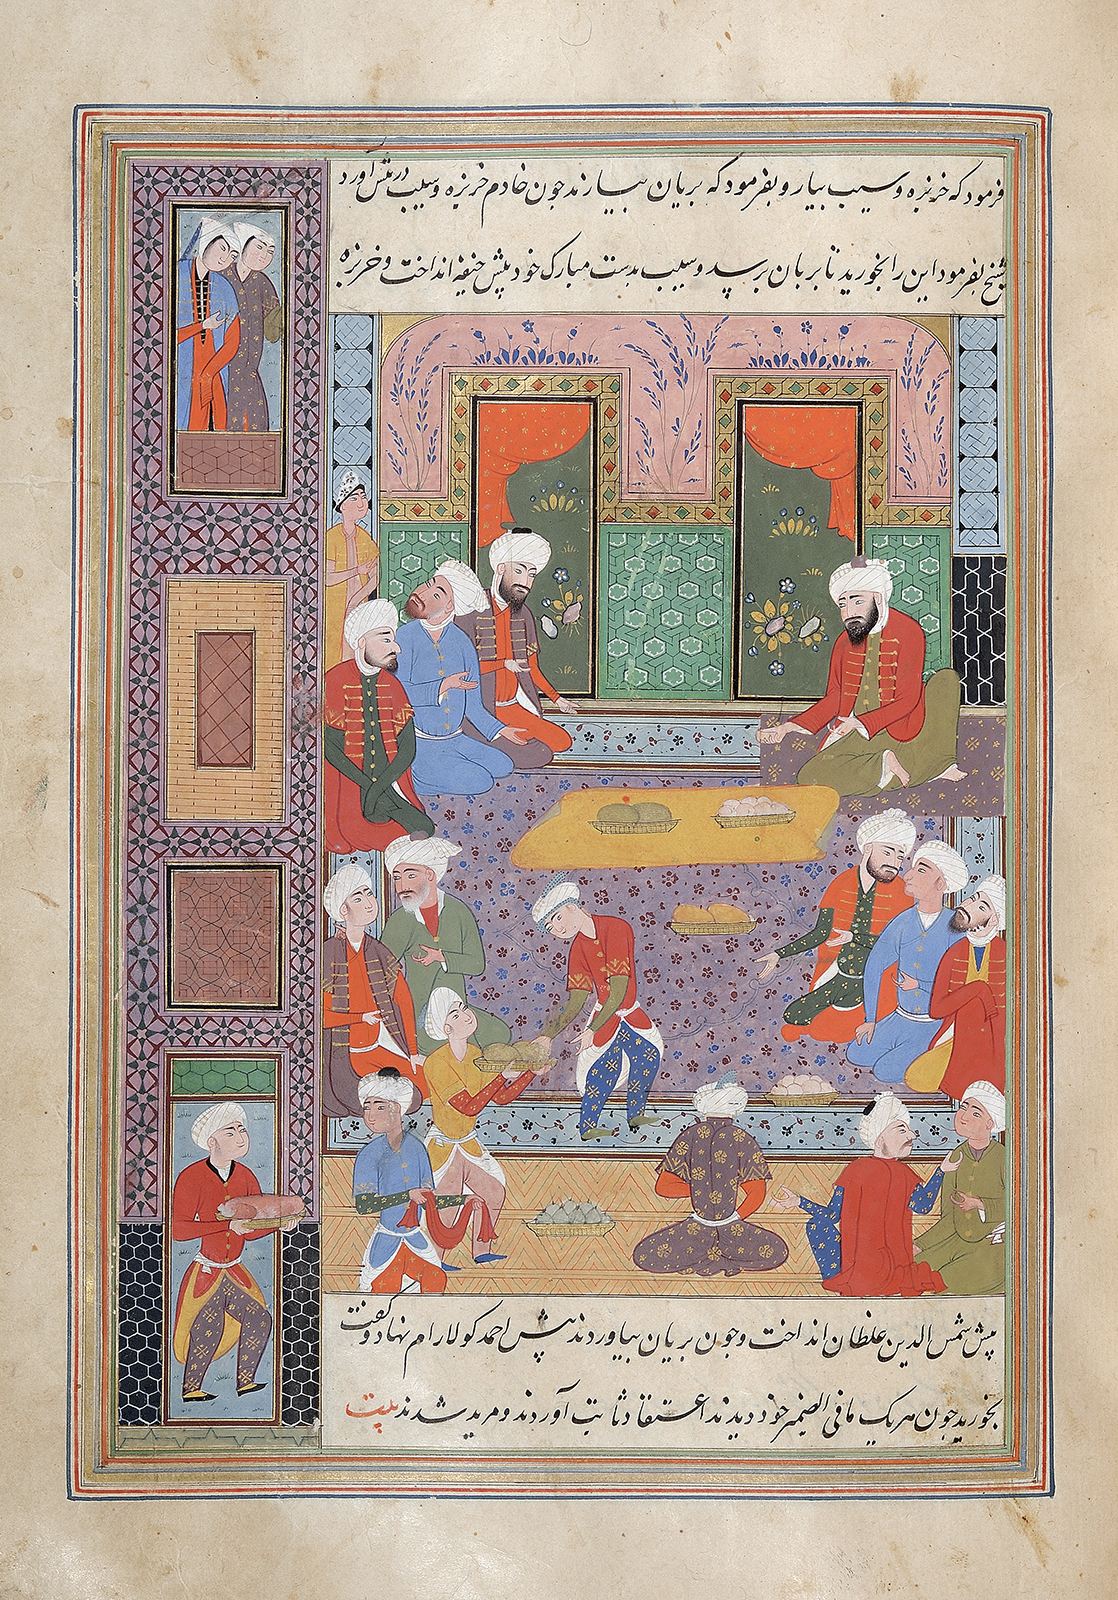 فرمود که خربزه و سیب بیار و بفرمود که بریان بیارند چون خادم خربزه و سیب در پیش آورد
شیخ بفرمود این را بخورید تا بریان برسد و سیب بدست مبارک خود پیش حنیفه انداخت و خربزه
پیش شمس الدین غلطان انداخت و چون بریان بیاوردند پیش احمد کولارام نهاد و گفت
بخورید چون هر یک ما فی الضمیر خود دیدند اعتقاد ثابت آوردند و مرید شدند بیت